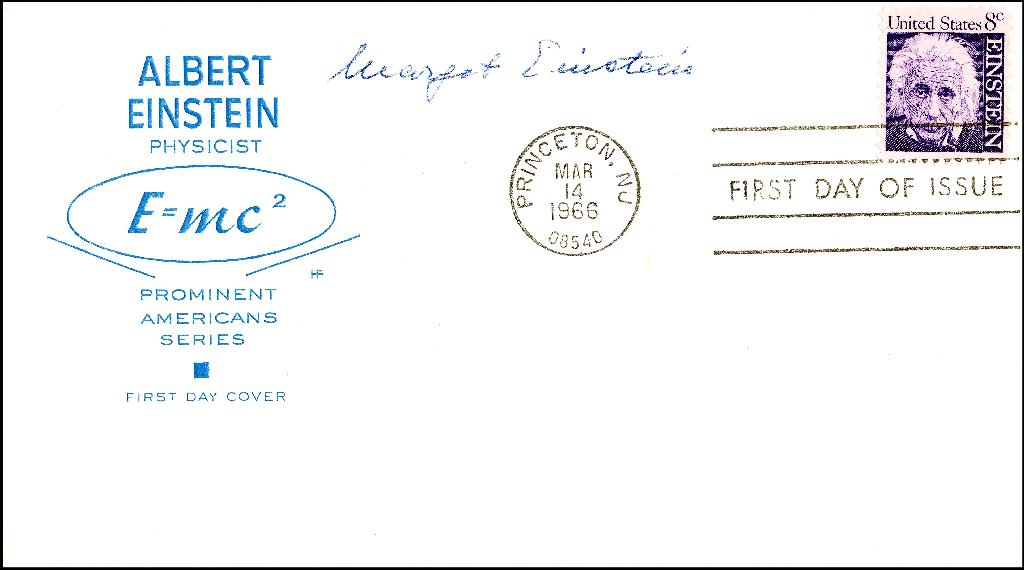 ALBERT
EINSTEIN
PHYSICIST
E=mc²
HF
PROMINENT
AMERICANS
SERIES
FIRST DAY COVER
Margot Einstein
PRINCETON, NJ
MAR
14
1966
08540
United States 8c
EINSTEIN
FIRST DAY OF ISSUE